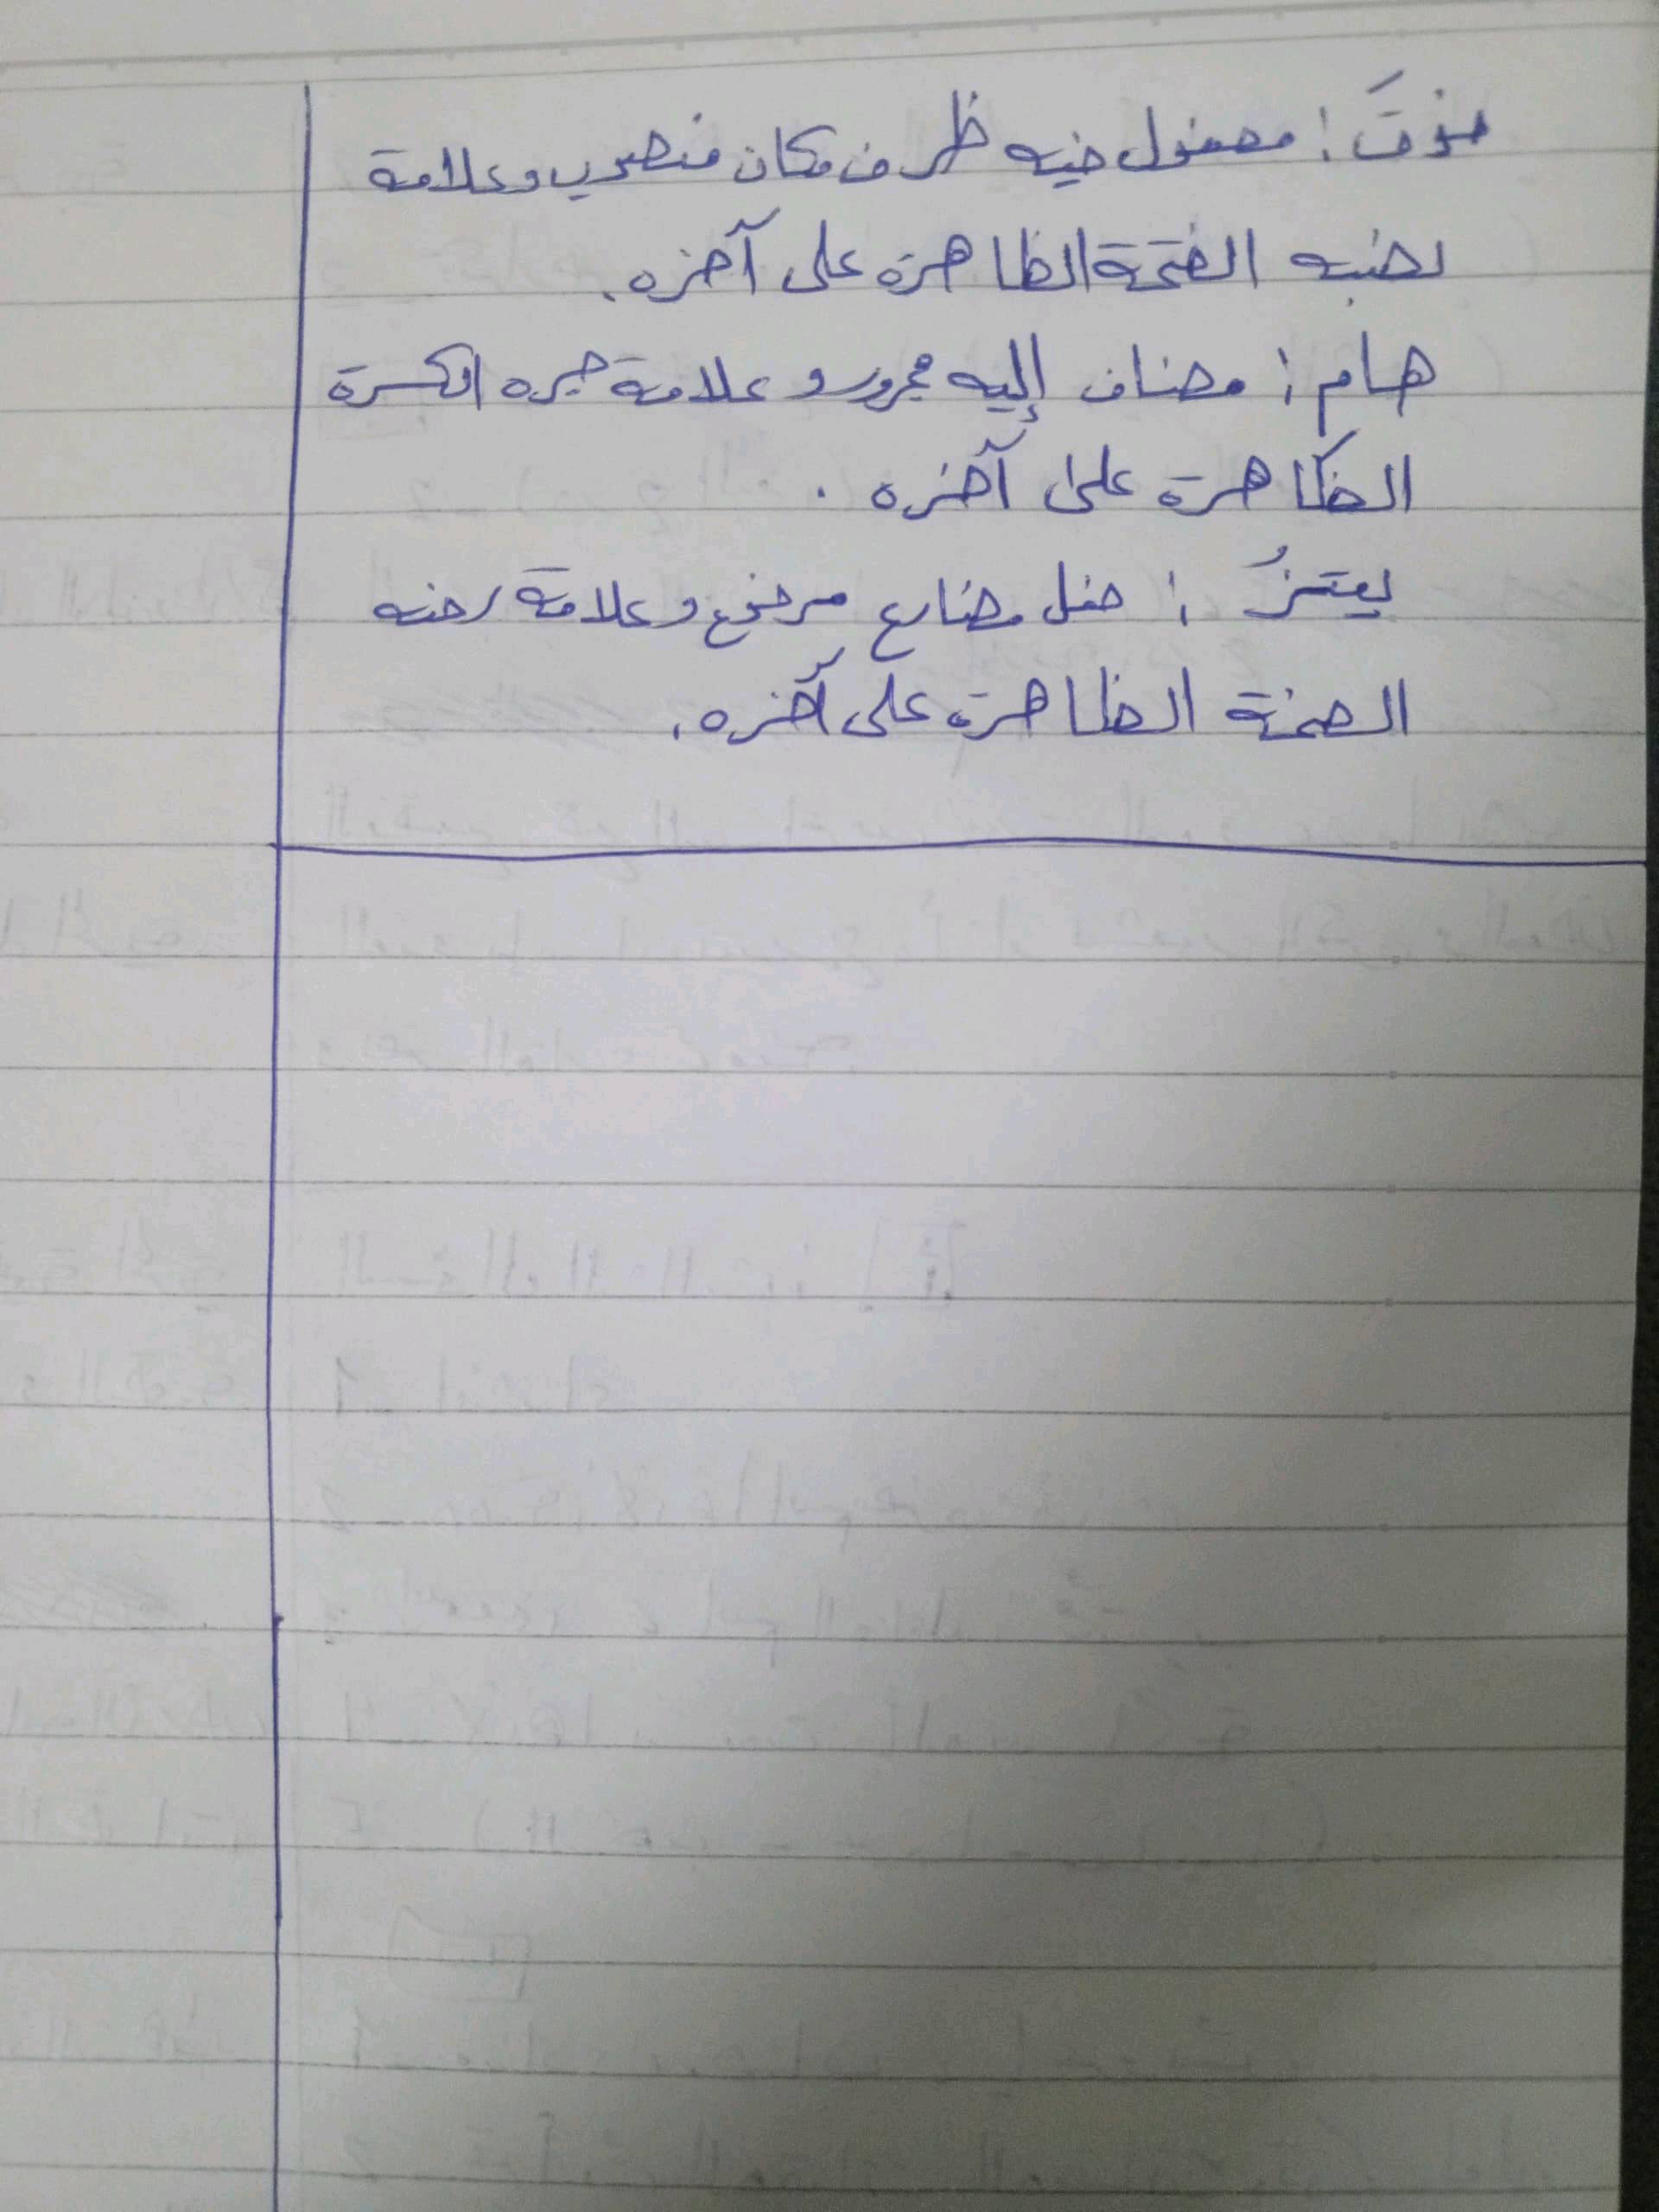 فوقَ : مفعول فيه ظرف مكان منصوب وعلامة
نصبه الفتحة الظاهرة على آخره.
هام : مضاف إليه مجرور وعلامة جره الكسرة
الظاهرة على آخره .
يعتزُ : فعل مضارع مرفوع وعلامة رفعه
الضمة الظاهرة على آخره.